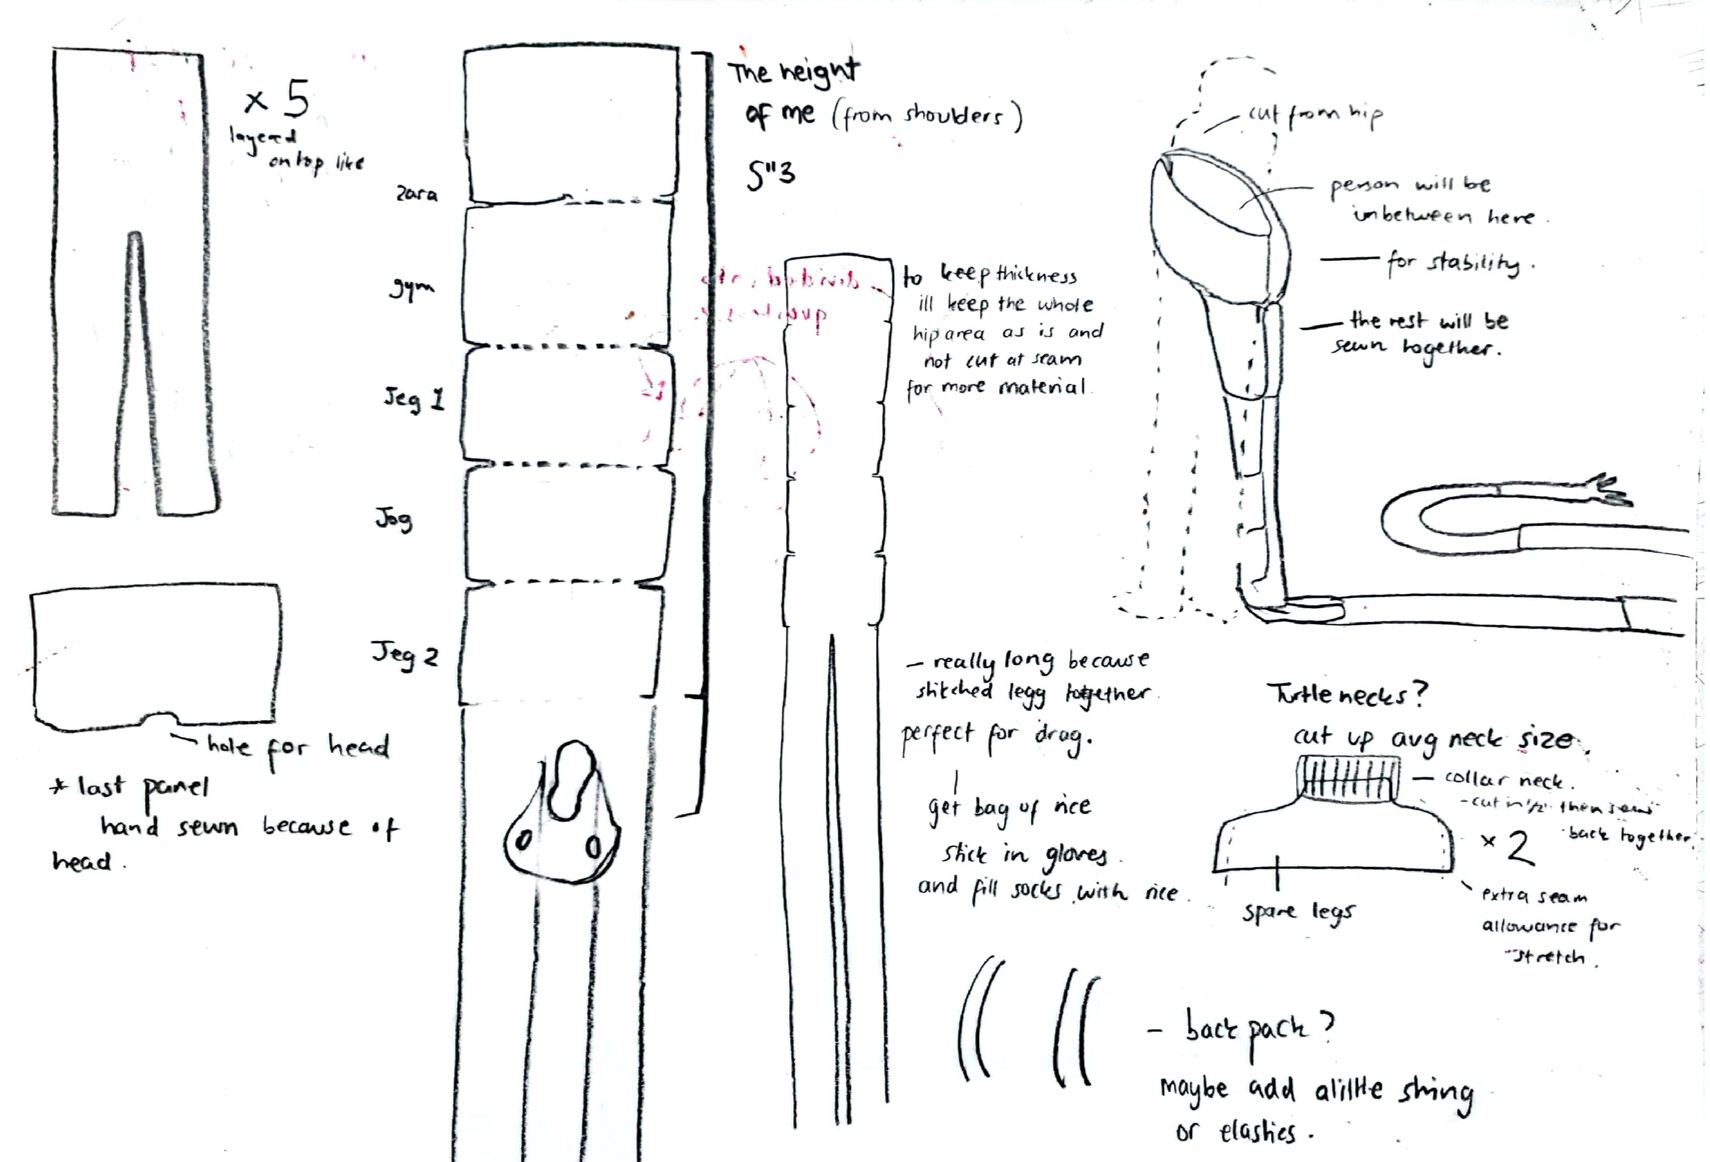 x 5
layered
on top like
zara
gym
Jeg 1
Jog
Jeg 2
hole for head
* last panel
hand sewn because of
head.
The height
of me (from shoulders)
5"3
divided into
to keep thickness
ill keep the whole
hip area as is and
not cut at seam
for more material.
- really long because
stitched legg together.
perfect for drag.
get bag of rice
stick in gloves.
and fill socks with rice.
cut from hip
person will be
inbetween here.
for stability.
the rest will be
sewn together.
Turtle necks?
cut up avg neck size.
collar neck.
- cut in 1/2 then sew
back together.
x 2
extra seam
allowance for
stretch.
spare legs
- back pack?
maybe add alittle string
or elastics.